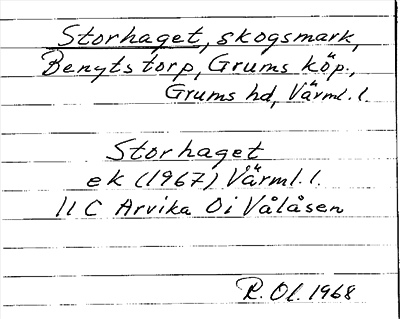 Storhaget, skogsmark,
Benytstorp, Grums köp.,
Grums hd, Värml. l.
Storhaget
ek (1967) Värml. l.
11 C Arvika Oi Vålåsen
R. Ol. 1968